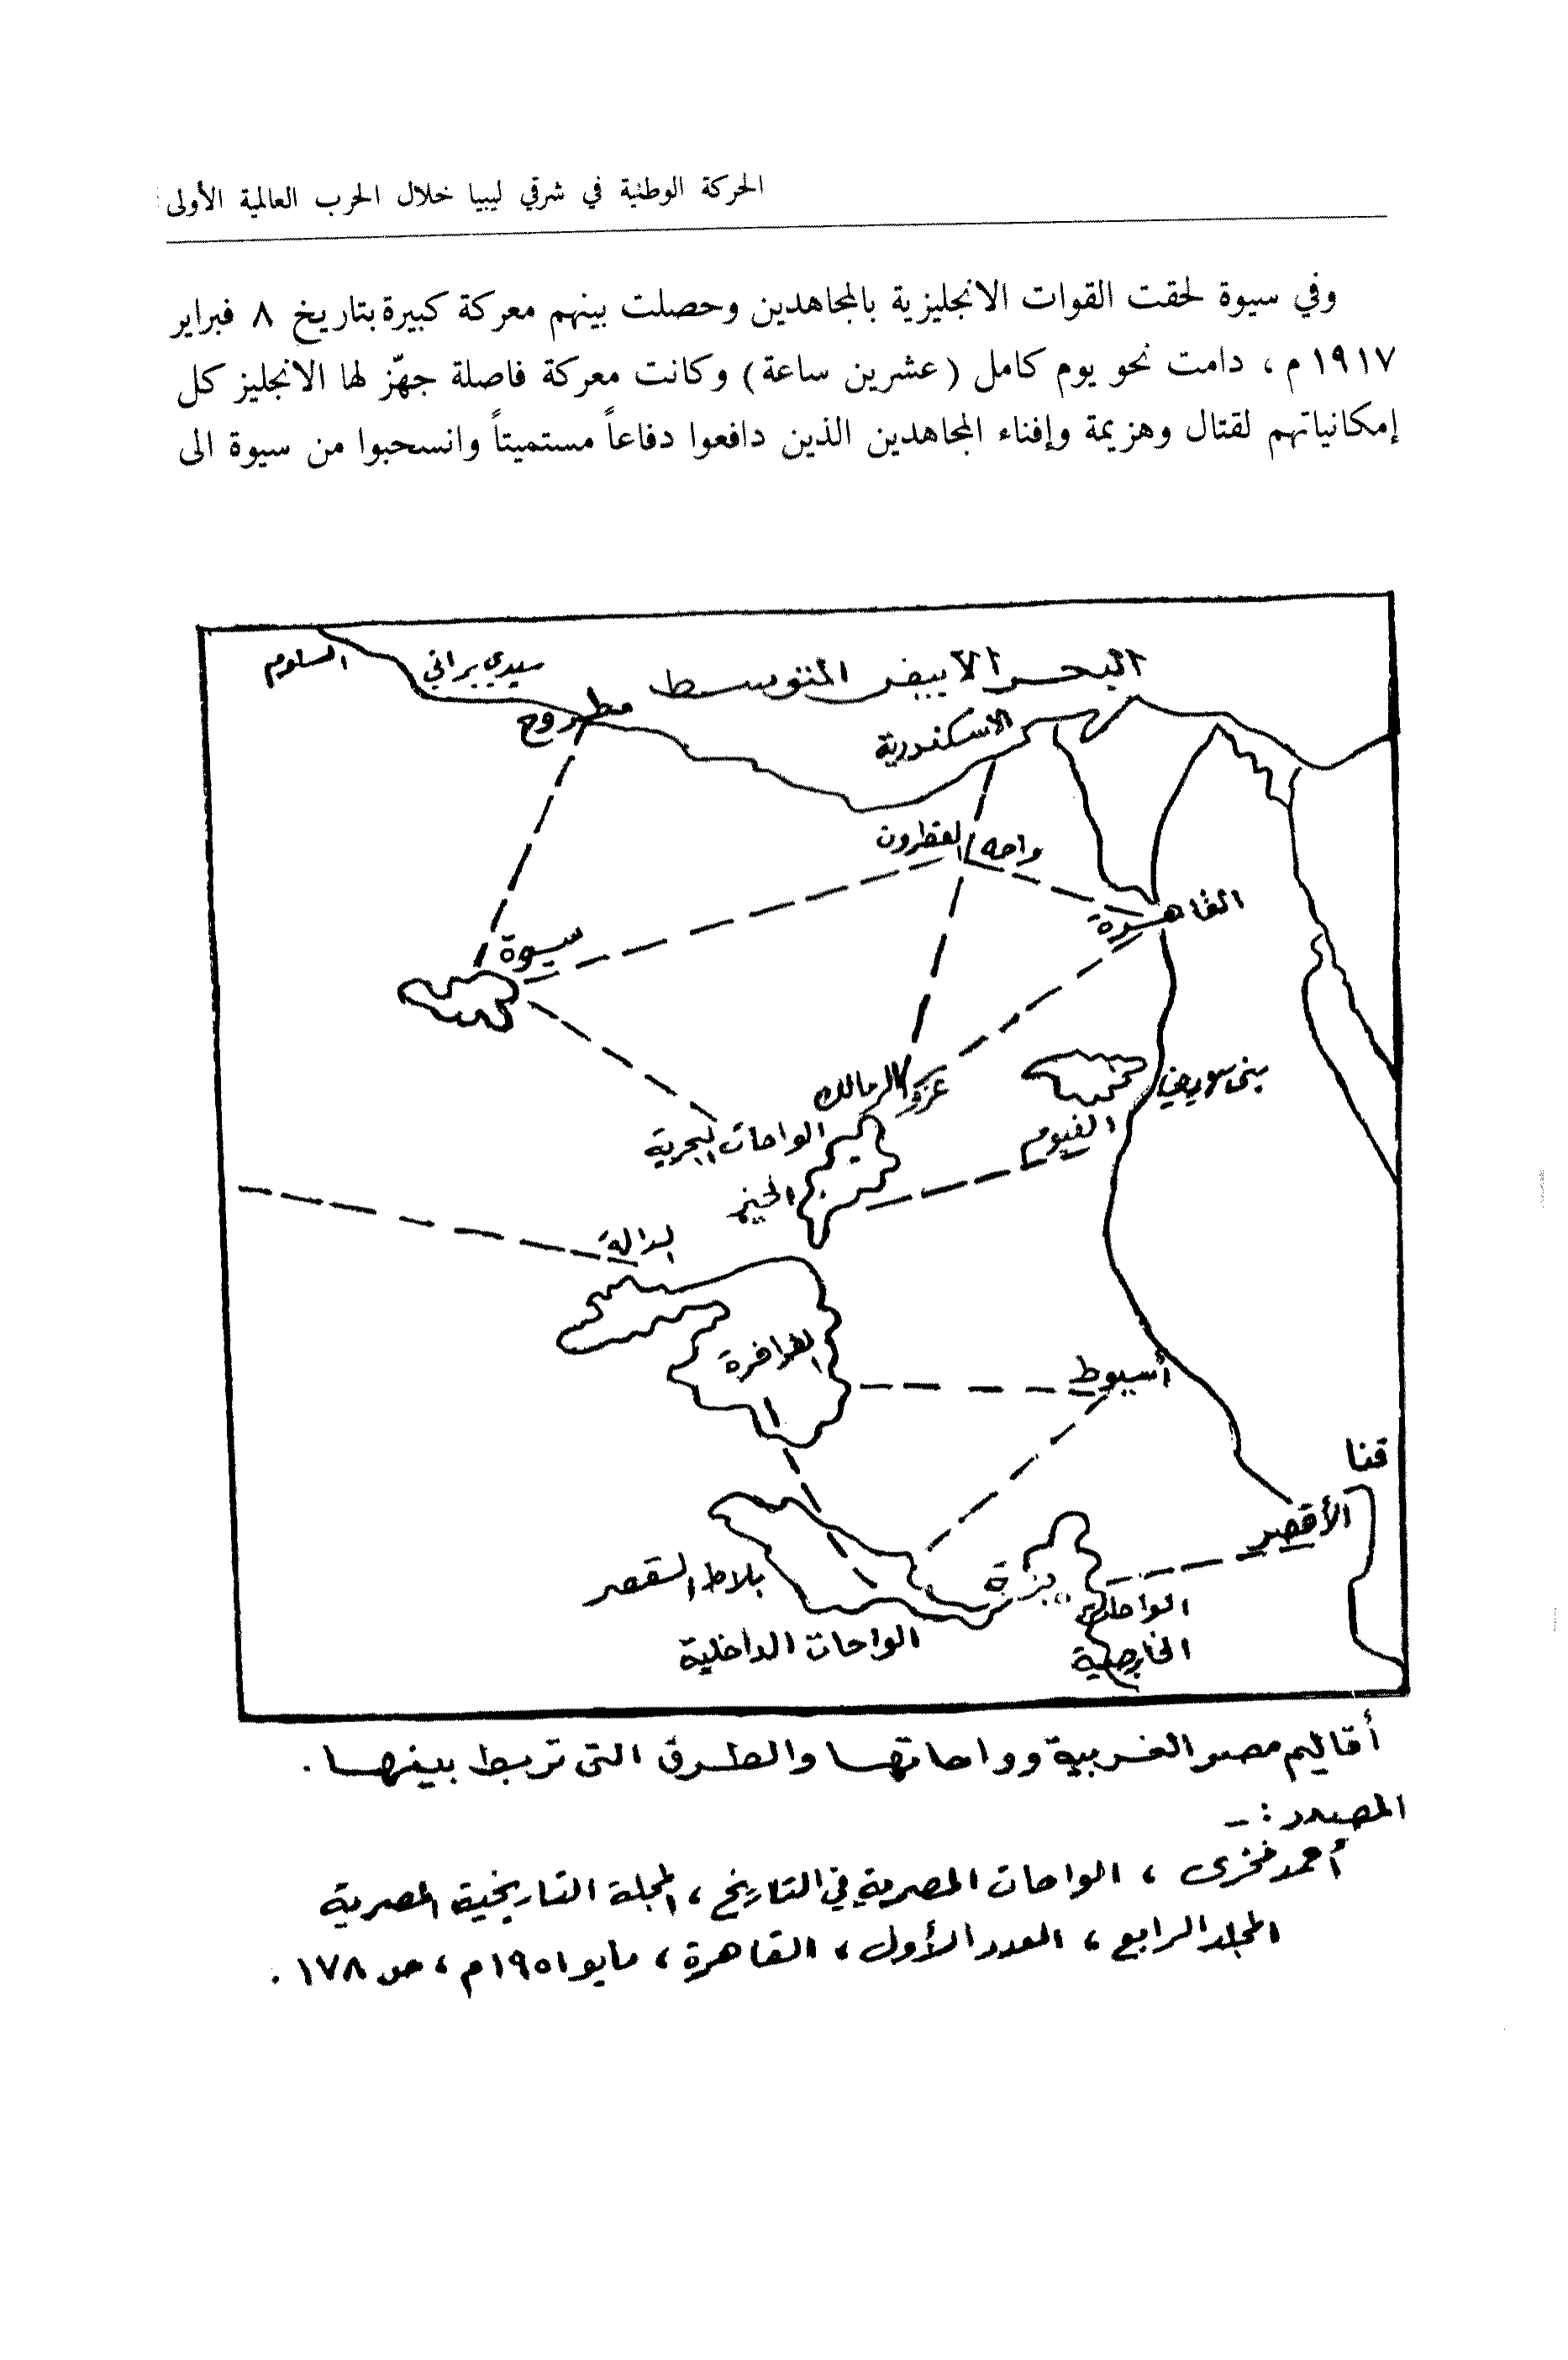 الحركة الوطنية في شرقي ليبيا خلال الحرب العالمية الأولى
وفي سيوة لحقت القوات الانجليزية بالمجاهدين وحصلت بينهم معركة كبيرة بتاريخ ٨ فبراير
١٩١٧ م ، دامت نحو يوم كامل (عشرين ساعة) وكانت معركة فاصلة جهّز لها الانجليز كل
إمكانياتهم لقتال وهزيمة وإفناء المجاهدين الذين دافعوا دفاعاً مستميتاً وانسحبوا من سيوة الى
البحر الابيض المتوسط
السلوم
سيدي براني
مطروح
الاسكندرية
واحه
القطرون
القاهرة
سيوة
بنى سويف
الفيوم
الواحات البحرية
الحيز
الدالة
الفرافرة
أسيوط
قنا
الأقصر
بلاط القصر
الواحات
الخارجية
الواحات الداخلية
أقاليم مصر الغربية وواحاتها والطرق التى تربط بينها .
المصدر : ــ
أحمد فخرى ، الواحات المصرية في التاريخ ، المجلة التاريخية المصرية
المجلد الرابع ، العدد الأول ، القاهرة ، مايو ١٩٥١ م ، ص ١٧٨ .